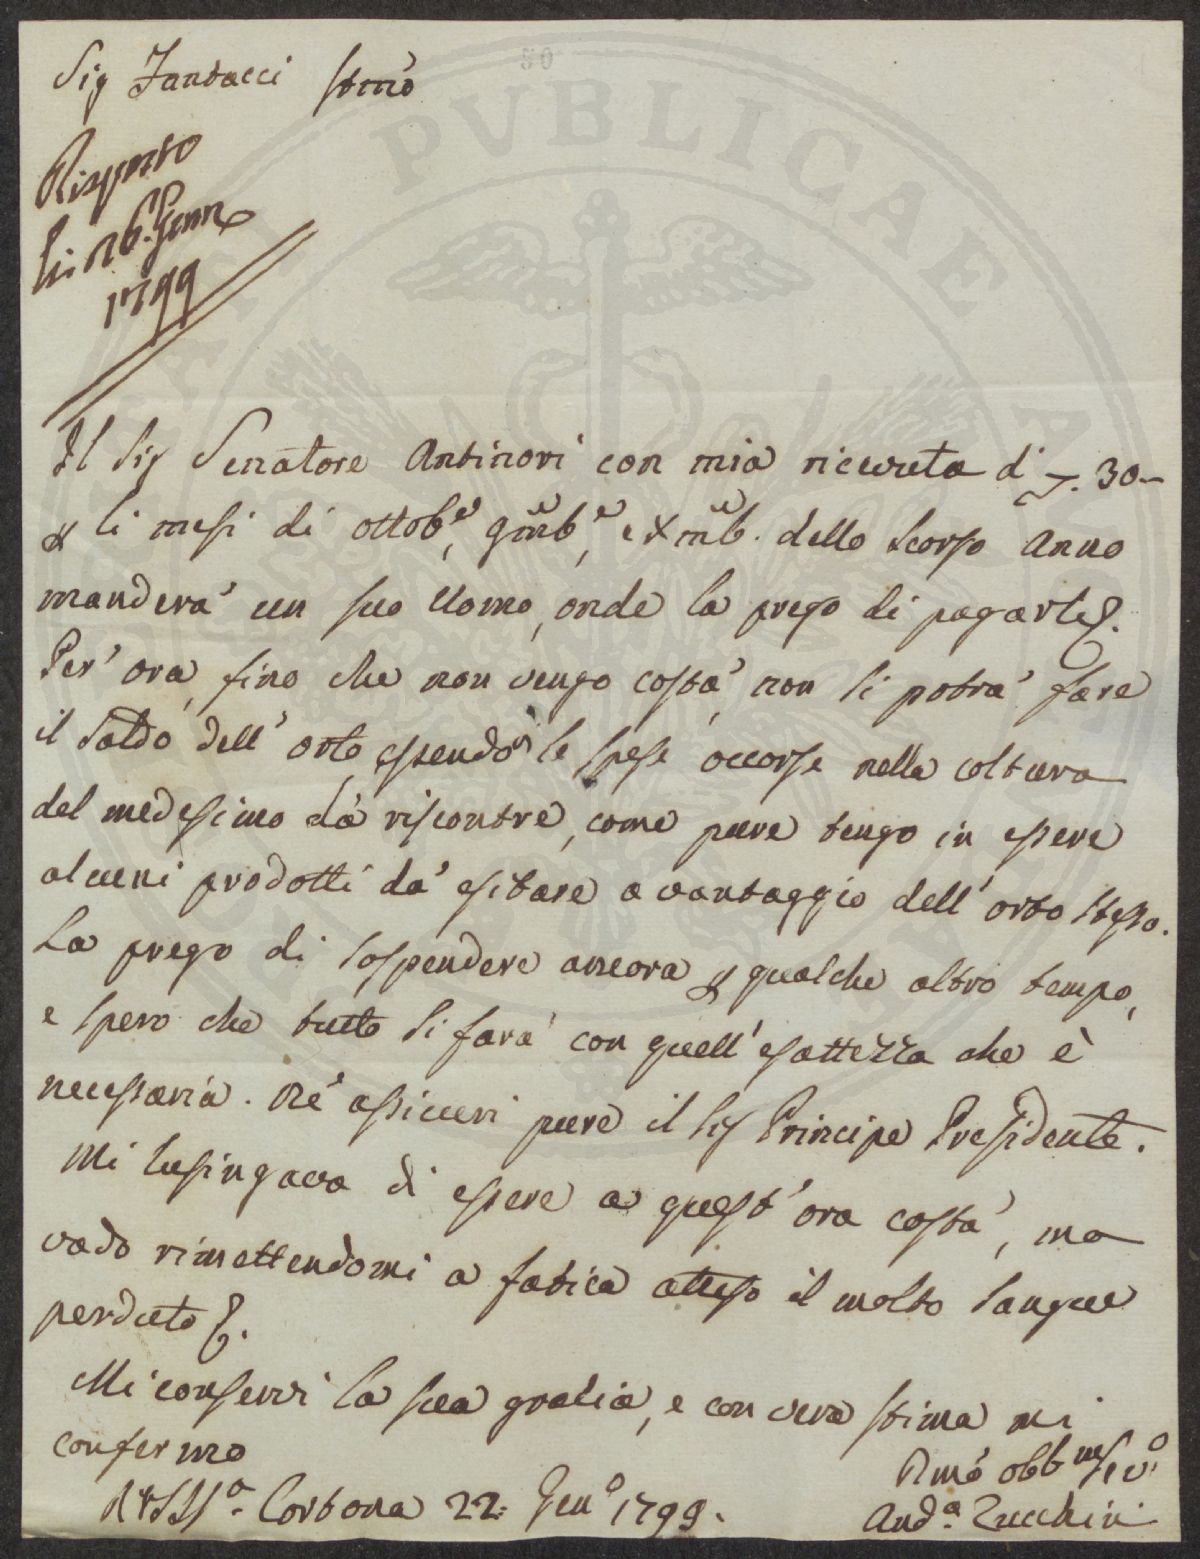 50
PVBLICAE
Sig Fantacci Stmo
Risposto
li 26. Genn
1799
Il Sig Senatore Antinori con mia ricevuta di 30
li mesi di ottobe, 9mbe, e Xmb. dello Scorso Anno
manderà un suo Uomo, onde la prego di pagarle
Per' ora, fino che non vengo costà, non si potrà fare
il Saldo dell' orto, essendo le spese occorse nella coltura
del medesimo da riscontre, come pure tengo in essere
alcuni prodotti da' esitare a vantaggio dell' orto stesso.
La prego di sospendere ancora qualche altro tempo,
e spero che tutto si farà con quell' esattezza che è
necessaria. Nè assicuri pure il Sig Principe Presidente.
Mi lusingava di essere a quest' ora costà, ma
vado rimettendomi a fatica atteso il molto sangue
perduto
Mi conservi la sua grazia, e con vera stima mi
confermo
Cortona 22: Geno 1799.
obbmo
Anda. Zucchini